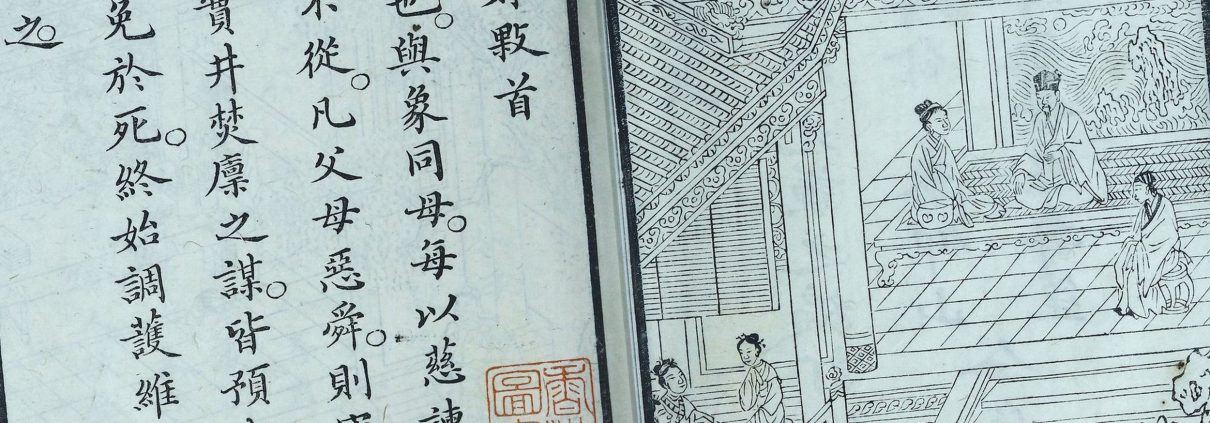 敤首
也。與象同母。每以慈諫
不從。凡父母惡舜。則
實井焚廩之謀。皆預
免於死。終始調護維
之。